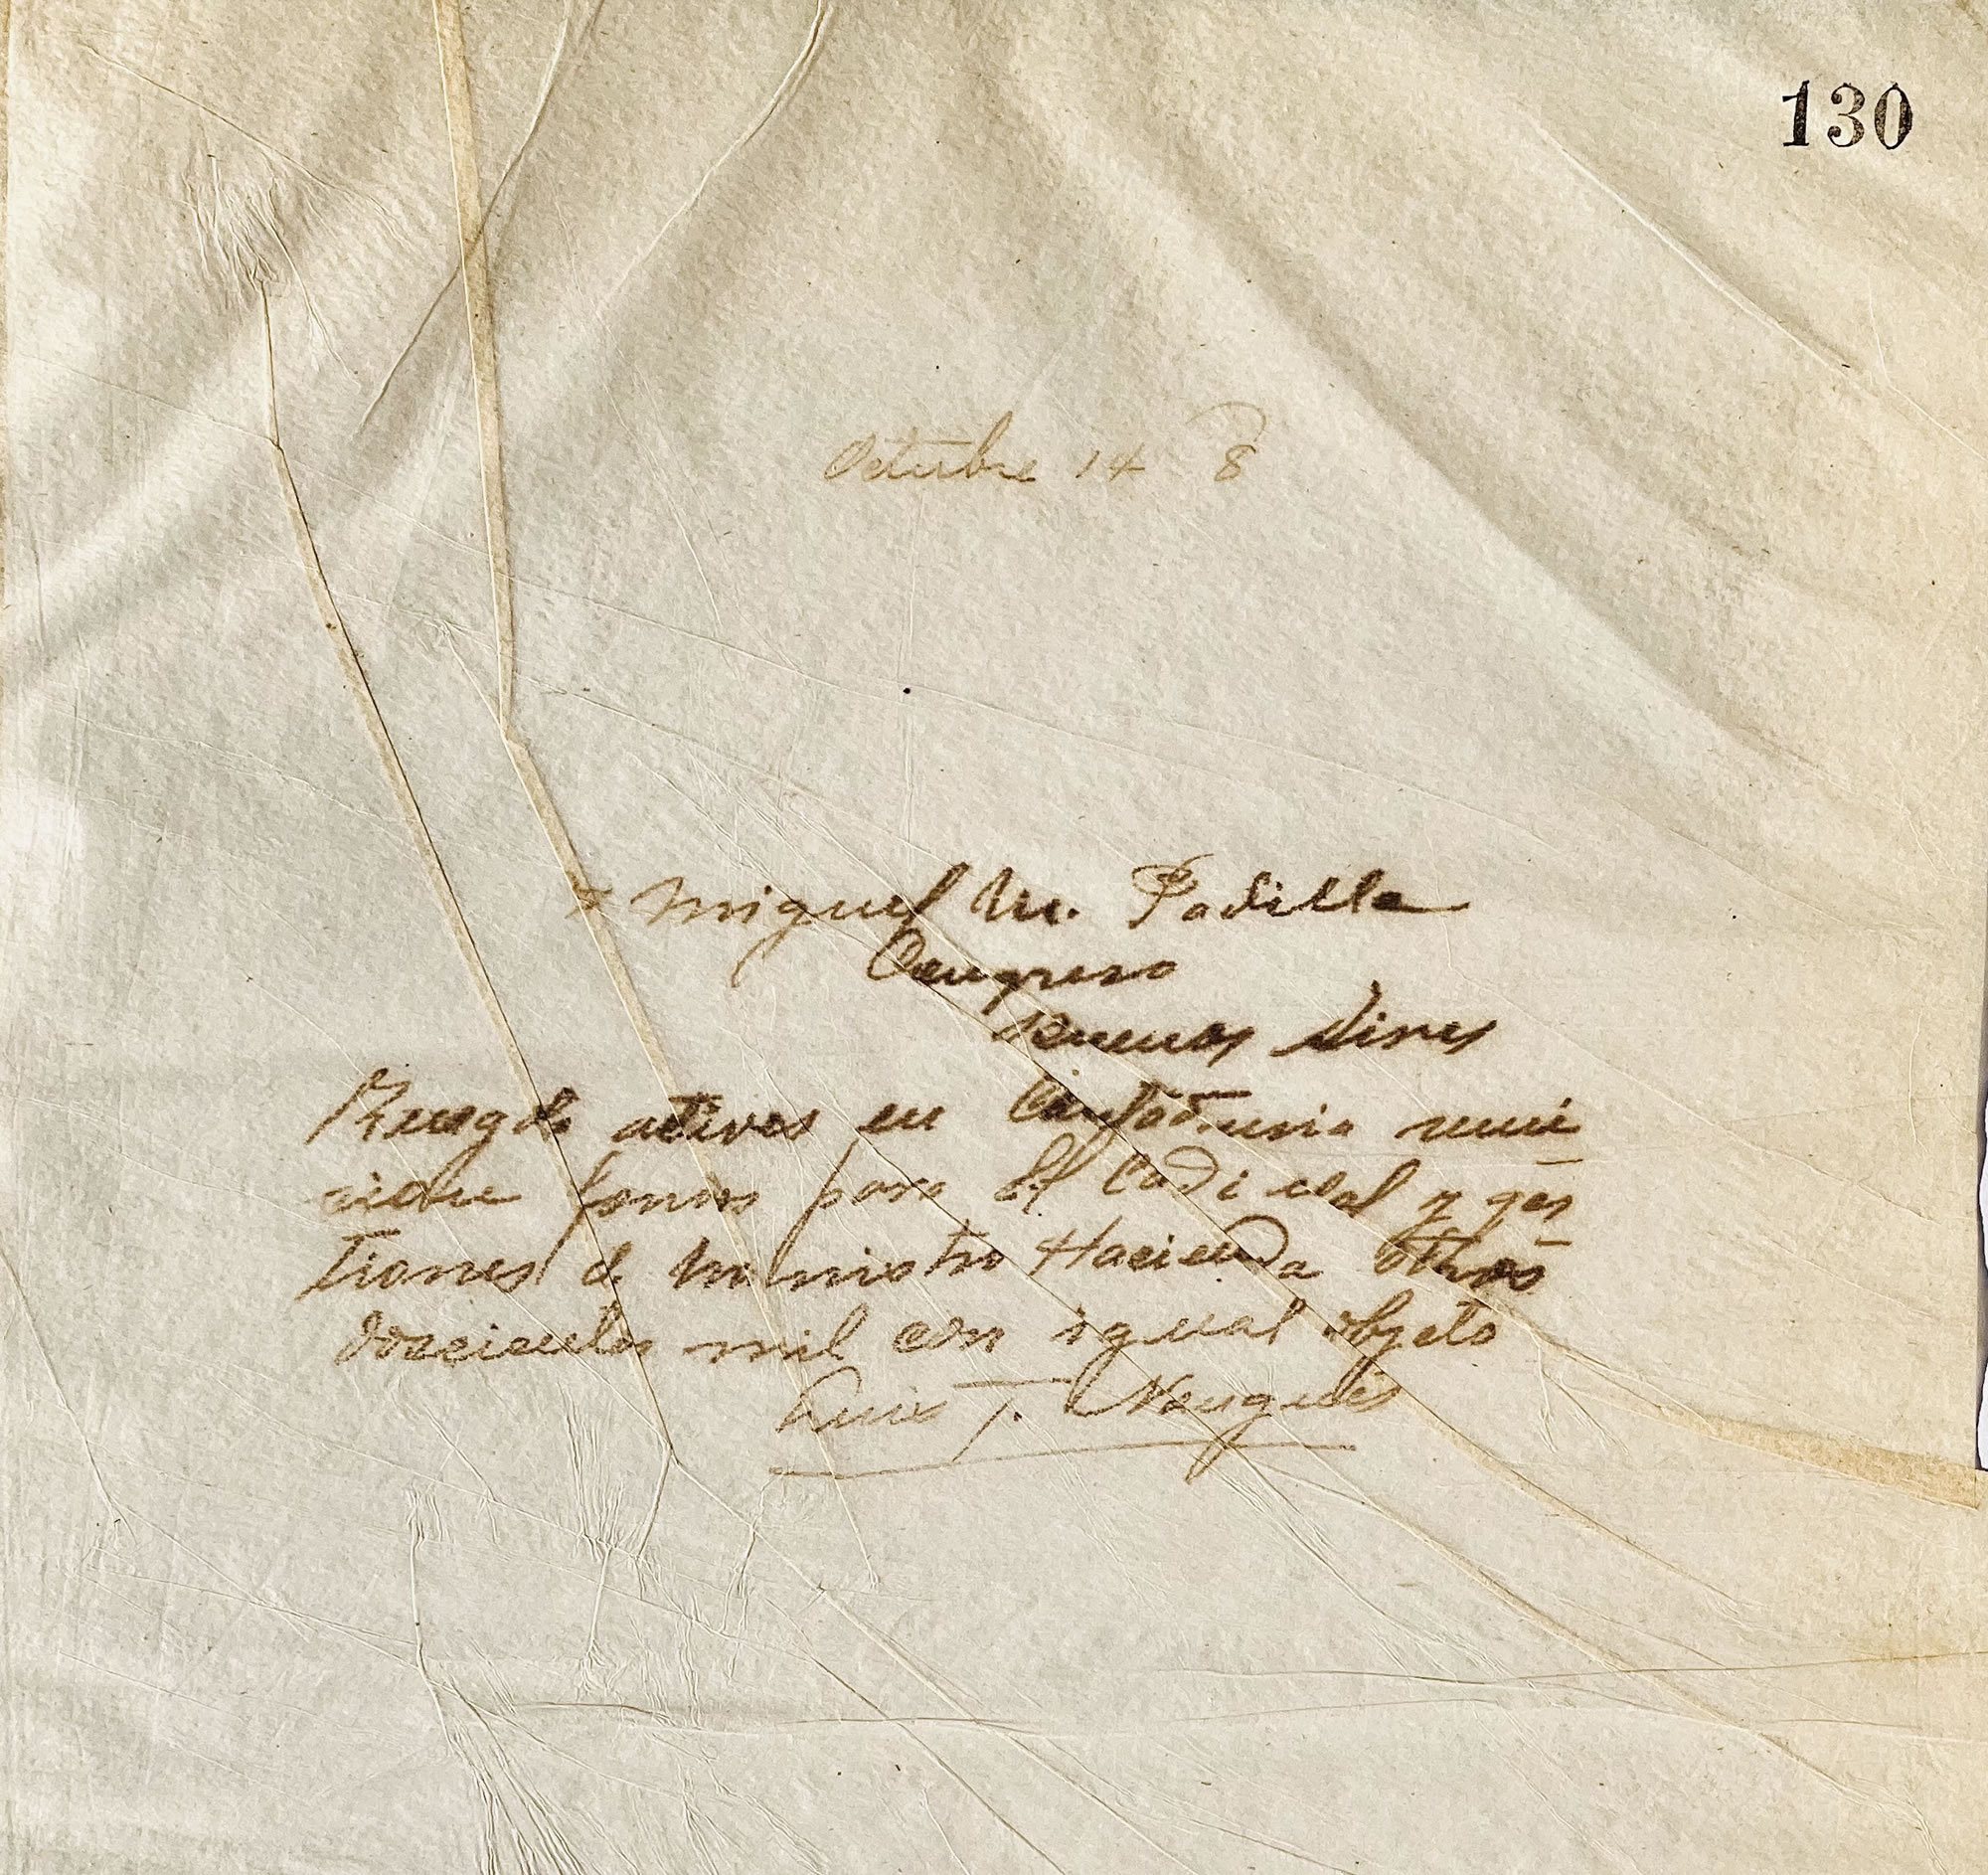 130
Octubre 14 8
Miguel M. Padilla
Congreso
Buenos Aires
Ruegole active en Contaduria
fonos para El Cadi
y ges
tiones de Ministro Hacienda Otros
doscientos mil con igual objeto
Luis F. Nougués